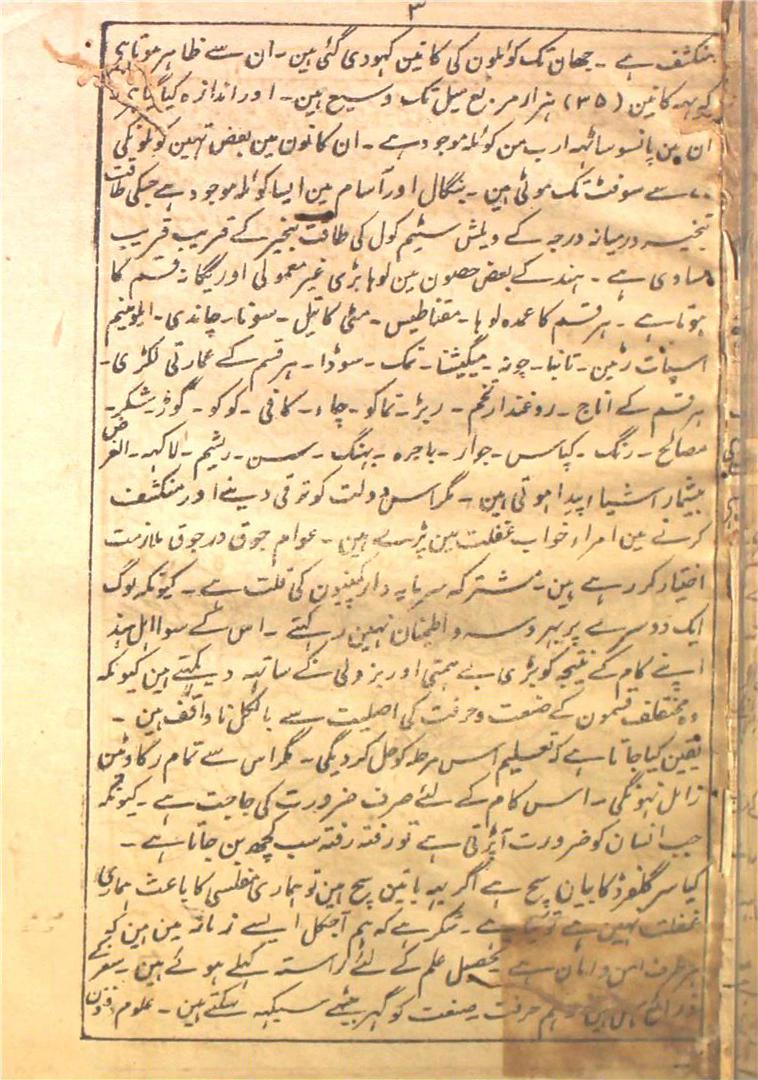 ۳
منکشف ہے ۔ جہان تک کوئلون کی کانین کہودی گئی ہین ۔ ان سے ظاہر ہوتا ہی
کہ یہہ کانین (۳۵) ہزار مربع میل تک وسیع ہین ۔ اور اندازہ کیا گیا ہے
ان مین پانسو ساٹہہ ارب من کوئلہ موجود ہے ۔ ان کانون مین بعض تہین کوئلونکی
سے سوفٹ تک موٹی ہین ۔ بنگال اور آسام مین ایسا کوئلہ موجود ہے جسکی طاقت
تبخیر درمیانہ درجہ کے ویلش سٹیم کول کی طاقت تبخیر کے قریب قریب
مساوی ہے ۔ ہند کے بعض حصون مین لوہا بڑی غیر معمولی اور یگانہ قسم کا
ہوتا ہے ۔ ہر قسم کا عمدہ لوہا ۔ مقناطیس ۔ مٹی کا تیل ۔ سونا ۔ چاندی ۔ الیومینیم
اسپات ۔ ٹین ۔ تانبا ۔ چونہ ۔ میگنیشا ۔ نمک ۔ سوڈا ۔ ہر قسم کے عمارتی لکڑی ۔
ہر قسم کے اناج ۔ روغندار تخم ۔ ربڑ ۔ تماکو ۔ چاء ۔ کافی ۔ کوکو ۔ گوڑ ۔ شکر ۔
مصالح ۔ رنگ ۔ کپاس ۔ جوار ۔ باجرہ ۔ بہنگ ۔ سن ۔ ریشم ۔ لاکہہ ۔ الغرض
بیشمار اشیاء پیدا ہوتی ہین ۔ مگر اس دولت کو ترقی دینے اور منکشف
کرنے مین امراء خواب غفلت مین پڑے ہین ۔ عوام جوق در جوق ملازمت
اختیار کر رہے ہین ۔ مشترکہ سرمایہ دار کمپنیون کی قلت ہے ۔ کیونکہ لوگ
ایک دوسرے پر بہروسہ و اطمنان نہین رکہتے ۔ اس کے سوا اہل ہند
اپنے کام کے نتیجہ کو بڑی بے ہمتی اور بزدلی کے ساتہہ دیکہتے ہین کیونکہ
وہ مختلف قسمون کے صنعت و حرفت کی اصلیت سے بالکل ناواقف ہین ۔
یقین کیا جاتا ہے کہ تعلیم اس مرحلہ کو حل کر دیگی ۔ مگر اس سے تمام رکاوٹین
زائل نہونگی ۔ اس کام کے لئے صرف ضرورت کی حاجت ہے ۔ کیونکہ
جب انسان کو ضرورت آ پڑتی ہے تو رفتہ رفتہ سب کچھ بن جاتا ہے ۔
کیا سر گلفورڈ کا بیان سچ ہے اگر یہہ باتین سچ ہین تو ہماری مفلسی کا باعث ہماری
غفلت نہین ہے تو کیا ہے ۔ شکر ہے کہ ہم آجکل ایسے زمانہ مین ہین کہ
ہر طرف امن و امان ہے تحصیل علم کے لئے راستہ کہلے ہوئے ہین ۔ سفر کے
ذرائع ہین ہم حرفت ۔ صنعت کو گہر بیٹہے سیکہہ سکتے ہین ۔ علوم و فنون